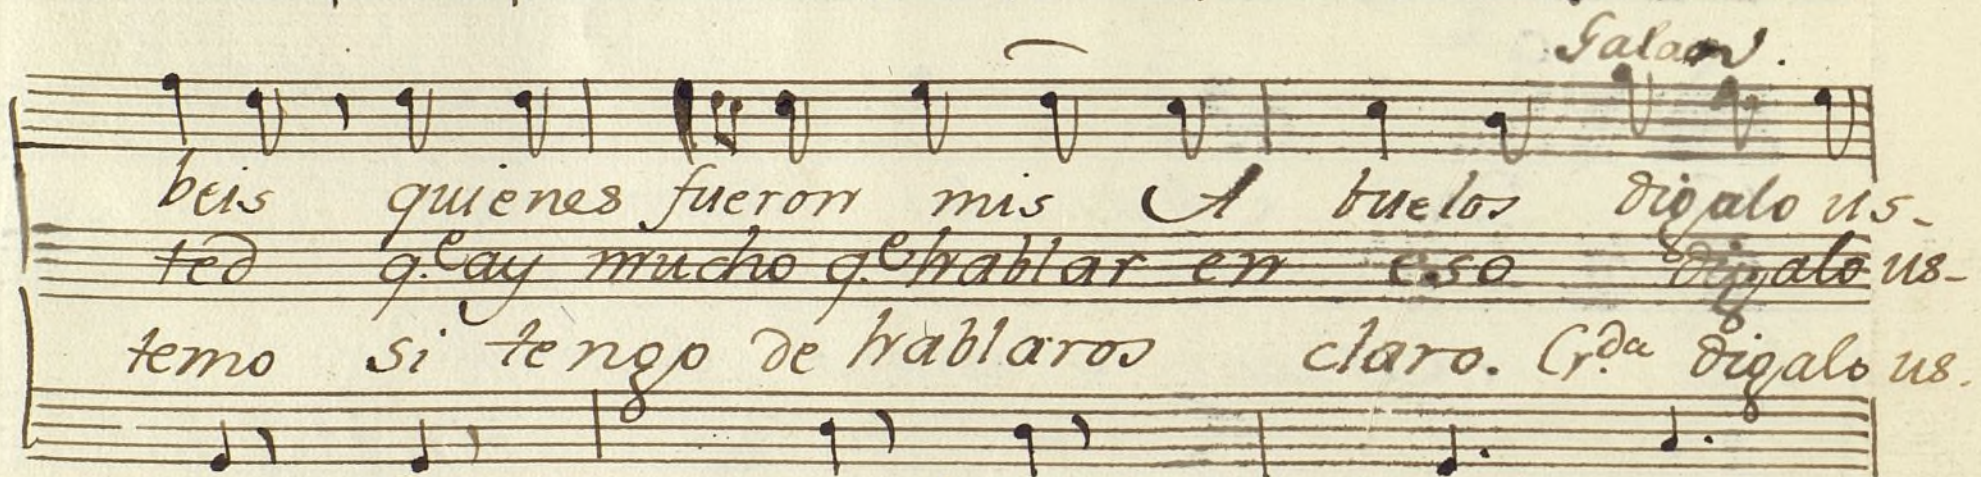 Galan.
beis quienes fueron mis A buelos digalo us-
ted q.e ay mucho q.e hablar en eso digalo us-
temo si tengo de hablaros claro. Cr.da digalo us.